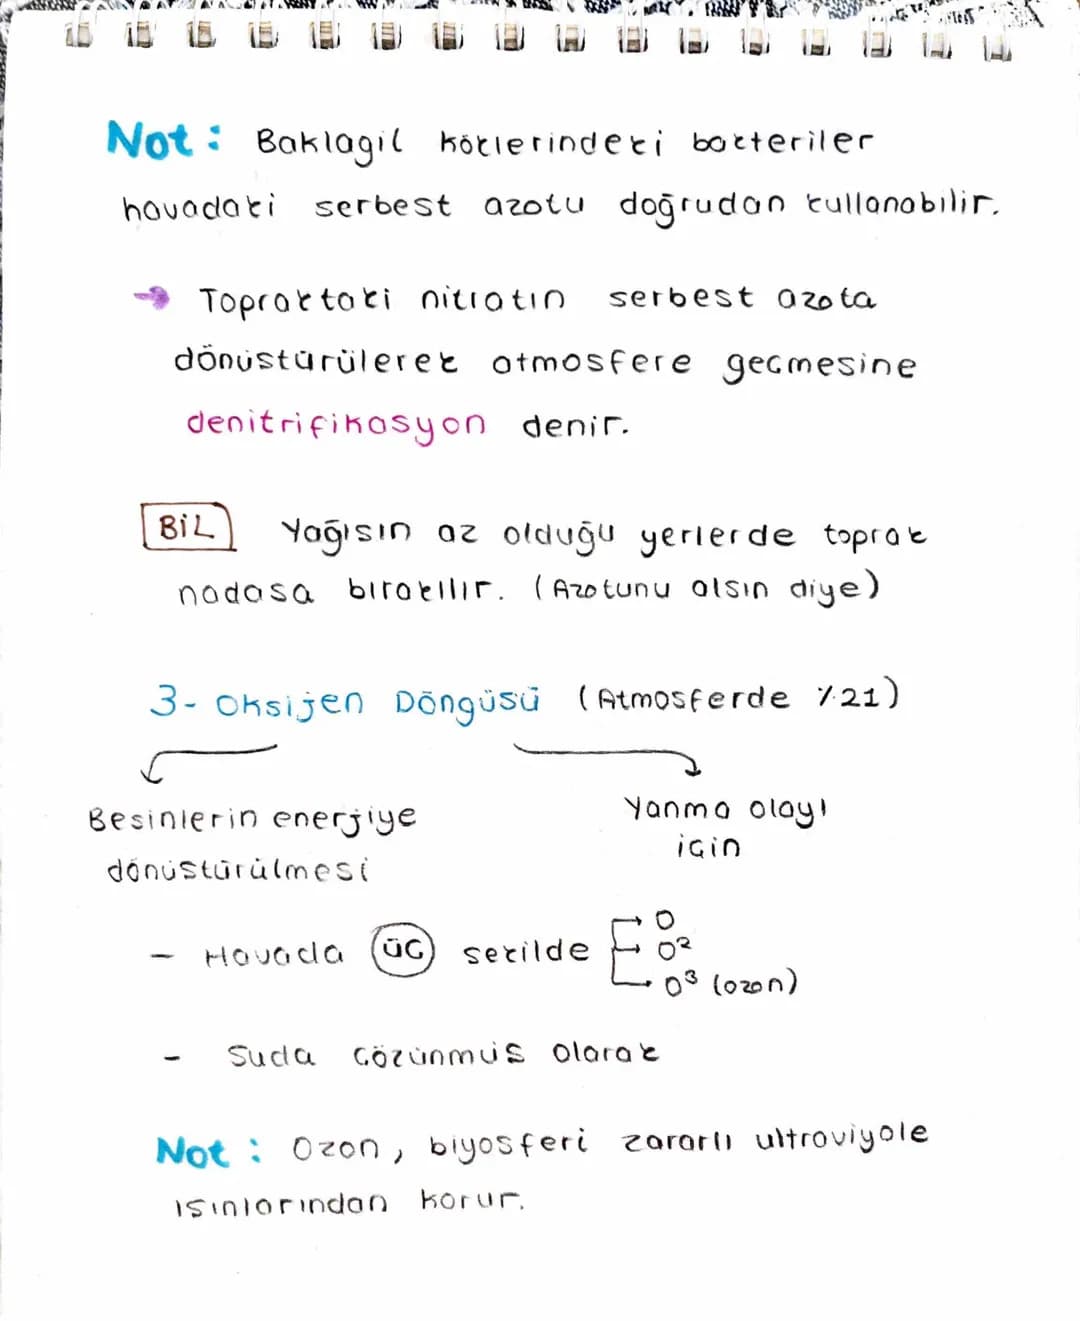 Not : Baklagil köklerindeki bakteriler
havadaki serbest azotu doğrudan kullanabilir.
→ Topraktaki nitratın serbest azota
dönüstürülerek atmosfere gecmesine
denitrifikasyon denir.
BİL Yağısın az olduğu yerlerde toprak
nadasa bırakılır. (Azotunu alsın diye)
3- Oksijen Döngüsü (Atmosferde %21)
Besinlerin enerjiye
dönüstürülmesi
Yanma olayı
icin
- Havada üc sekilde → O
→ O²
→ O³ (ozon)
- Suda cözünmüs olarak
Not : Ozon, biyosferi zararlı ultraviyole
ısınlarından korur.